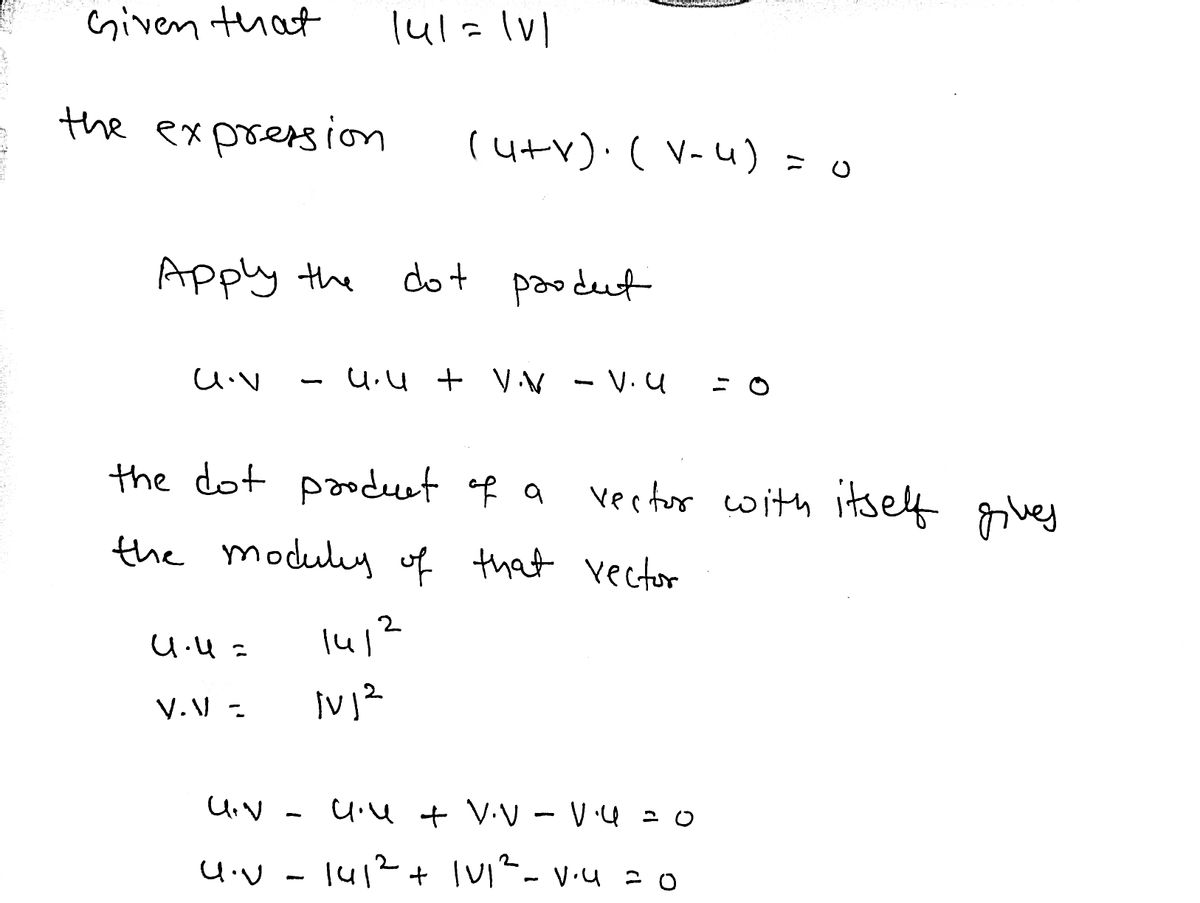 Given that |u| = |v|
the expression (u+v)·(v-u) = 0
Apply the dot product
u·v - u·u + v·v - v·u = 0
the dot product of a vector with itself gives
the modulus of that vector
u·u = |u|²
v·v = |v|²
u·v - u·u + v·v - v·u = 0
u·v - |u|² + |v|² - v·u = 0